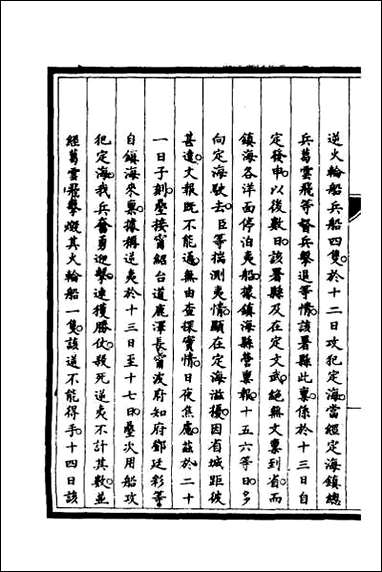 逆火輪船兵船四隻。於十二日攻犯定海。當經定海鎮總
兵葛雲飛等督兵擊退等情。該署縣此稟。係於十三日自
定發申。以後數日。該署縣及在定文武。絕無文稟到省。而
鎮海各洋面停泊夷船。據鎮海縣營稟報。十五六等日。多
向定海駛去。臣等揣測夷情。顯在定海滋擾。因省城距彼
甚遠。文報既不能遞。無由查探實情。日夜焦慮。茲於二十
一日子刻。疊接甯紹台道鹿澤長甯波府知府鄧廷彩等
自鎮海來稟。據稱逆夷於十三日至十七日。疊次用船攻
犯定海。我兵奮勇迎擊。連獲勝仗。殺死逆夷不計其數。並
經葛雲飛擊燬其火輪船一隻。該逆不能得手。十四日該